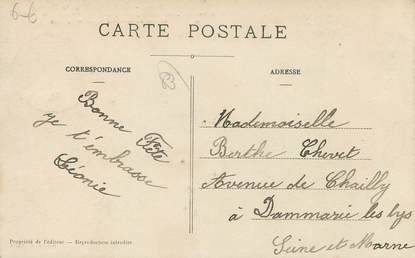 6-6
CARTE POSTALE
CORRESPONDANCE
ADRESSE
Bonne Fête
je t'embrasse
Léonie
Mademoiselle
Berthe Chevet
Avenue de Chailly
à Dammarie les lys
Seine et Marne
Propriété de l'éditeur. — Reproduction interdite